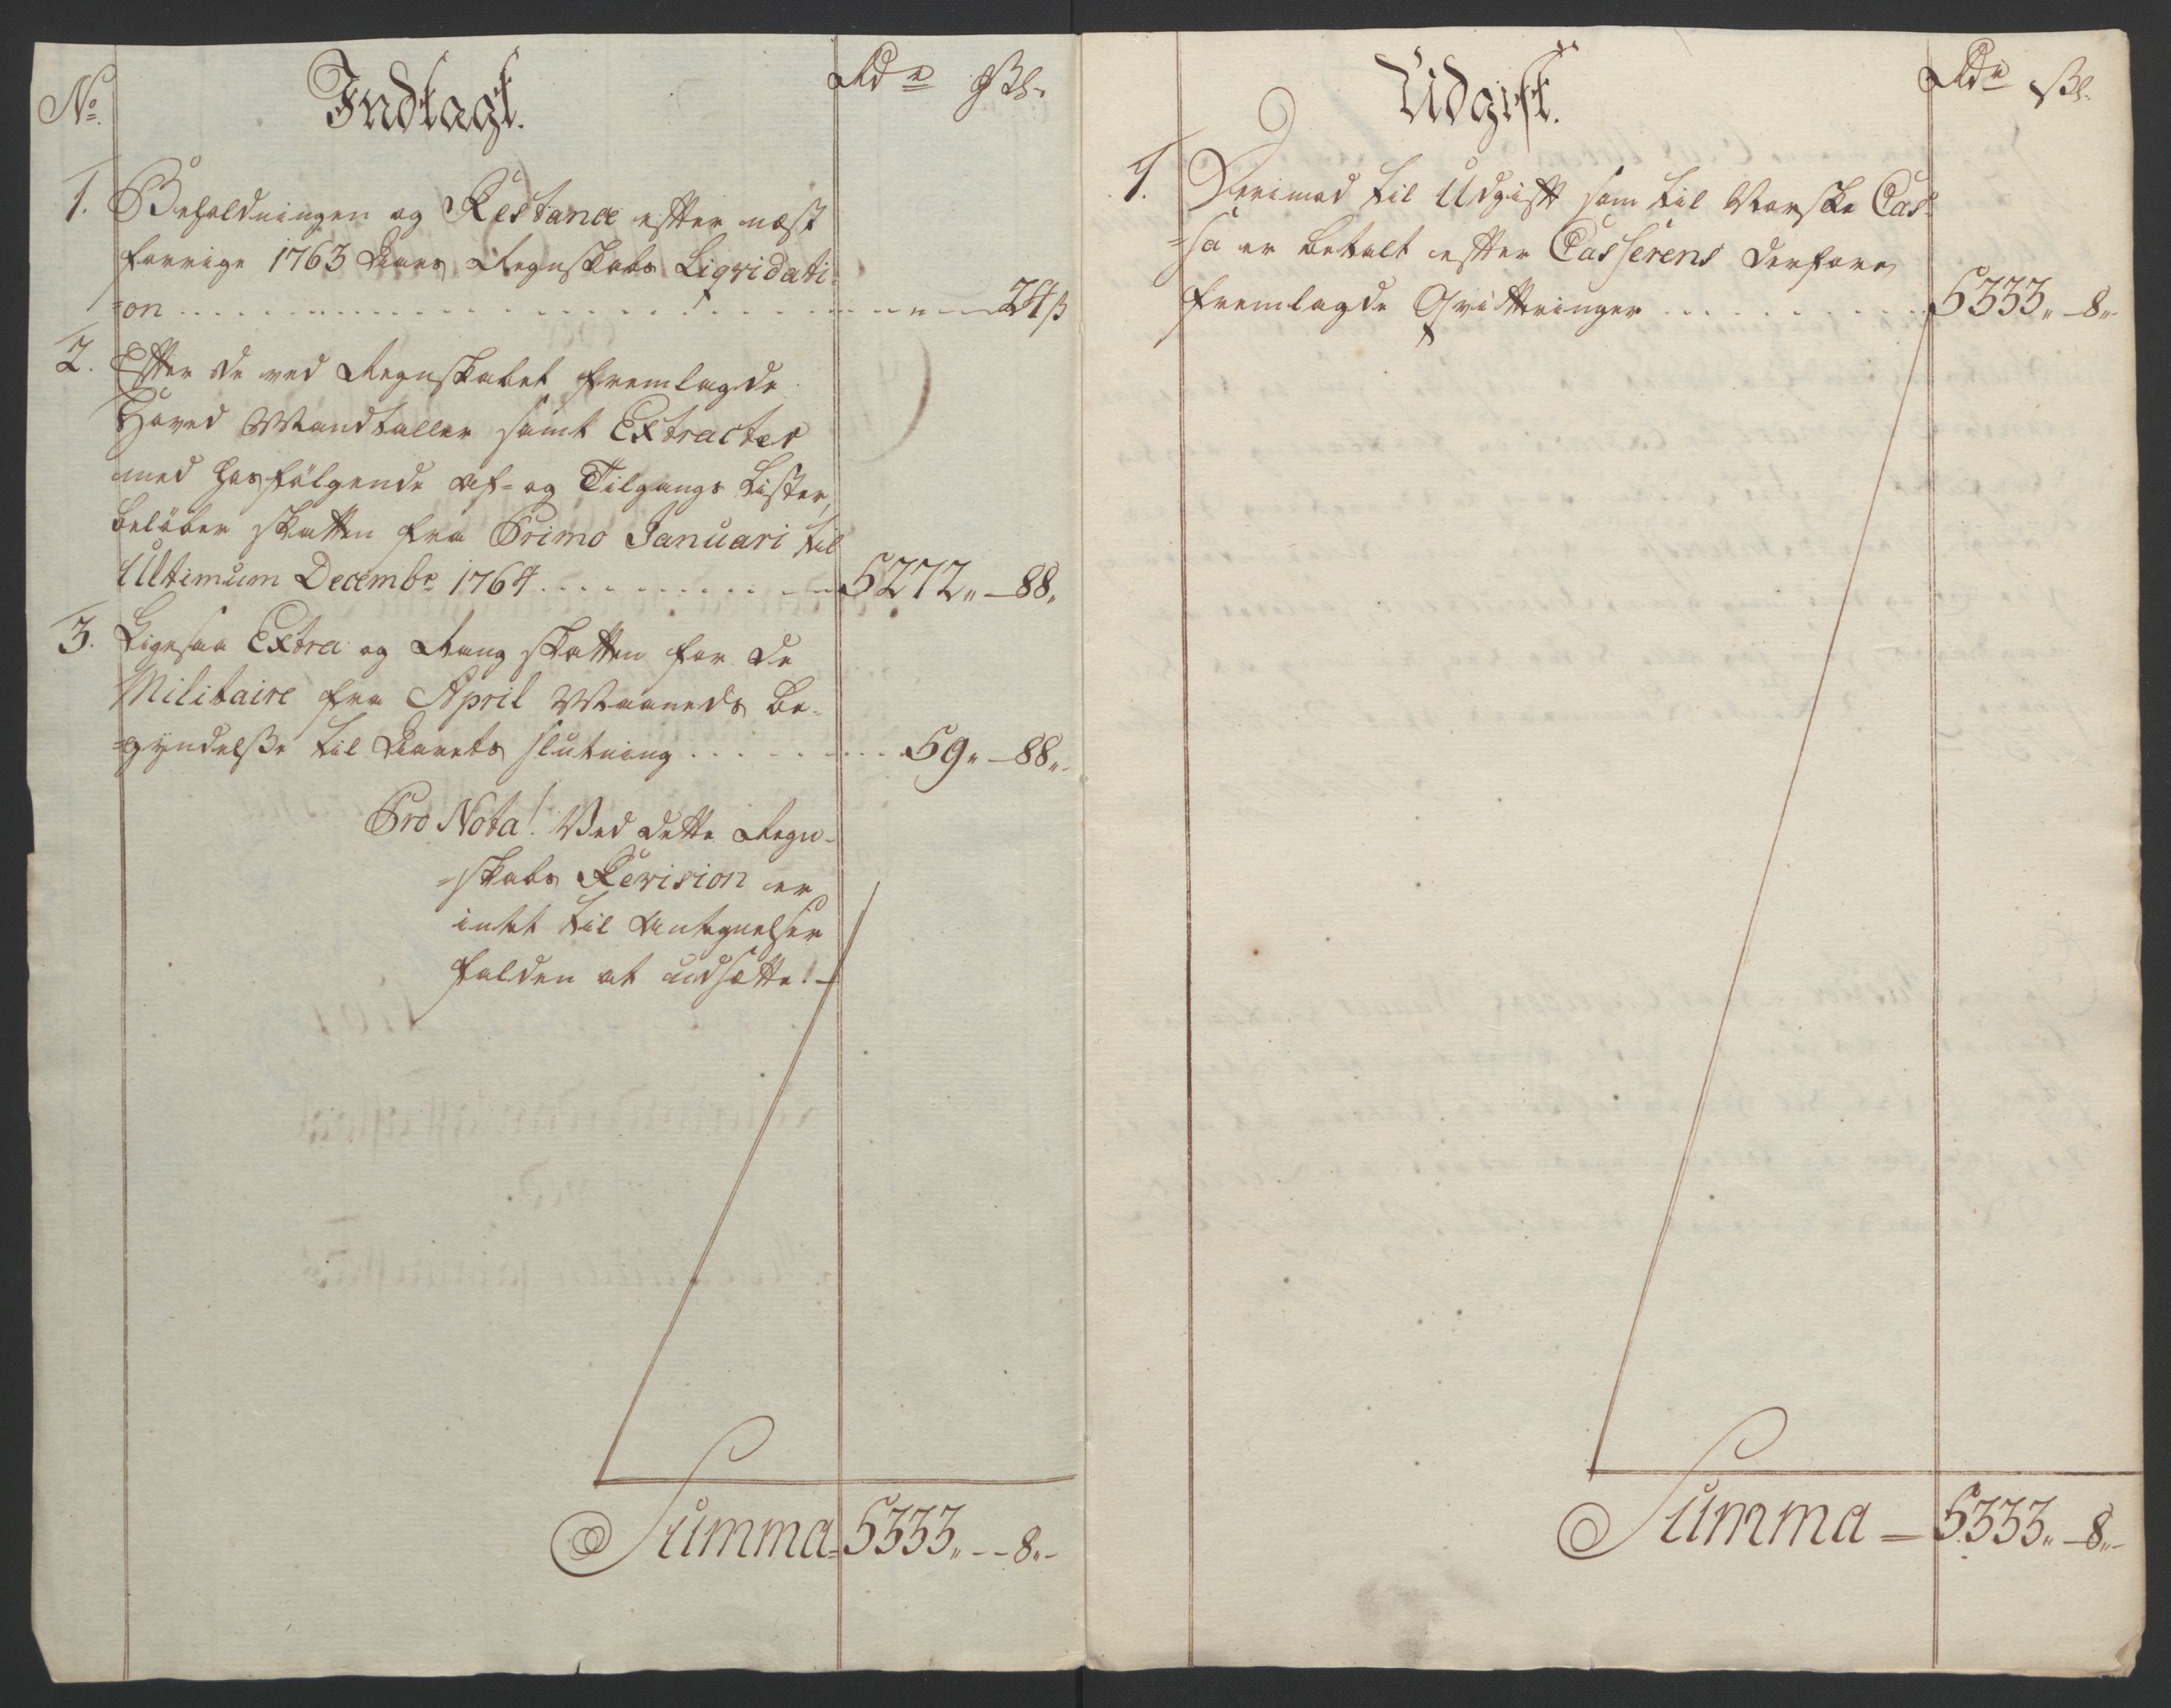 No. Indtægt. Rdr ßl.
1. Beholdningen og Restance efter næst
forrige 1763 Aars Regnskabs Liqvidati-
=on . . . . . . . . . . . . . . . 24 ß
2. Efter de ved Regnskabet fremlagde
Hoved Mandtaller samt Extracter
med hosfölgende Af- og Tilgangs Lister,
belöber skatten fra Primo Januari til
Ultimum Decembr 1764 . . . . . . . . . . 5272„ – 88„
3. Ligesaa Extra og Rang skatten for de
Militaire fra April Maaneds be-
=gyndelße til Aarets slutning . . . . . . . . 59„ – 88„
Pro Nota! Ved dette Regn-
=skabs Revision er
intet til Antegnelser
falden at udsætte. –
Summa 5333„ – 8„
Udgift. Rdr ßl.
1. Derimod til Udgift som til Norske Cas-
=sa er betalt efter Casserens derfore
fremlagde Qvitteringer . . . . . . . . . . 5333„ – 8„
Summa – 5333„ – 8„